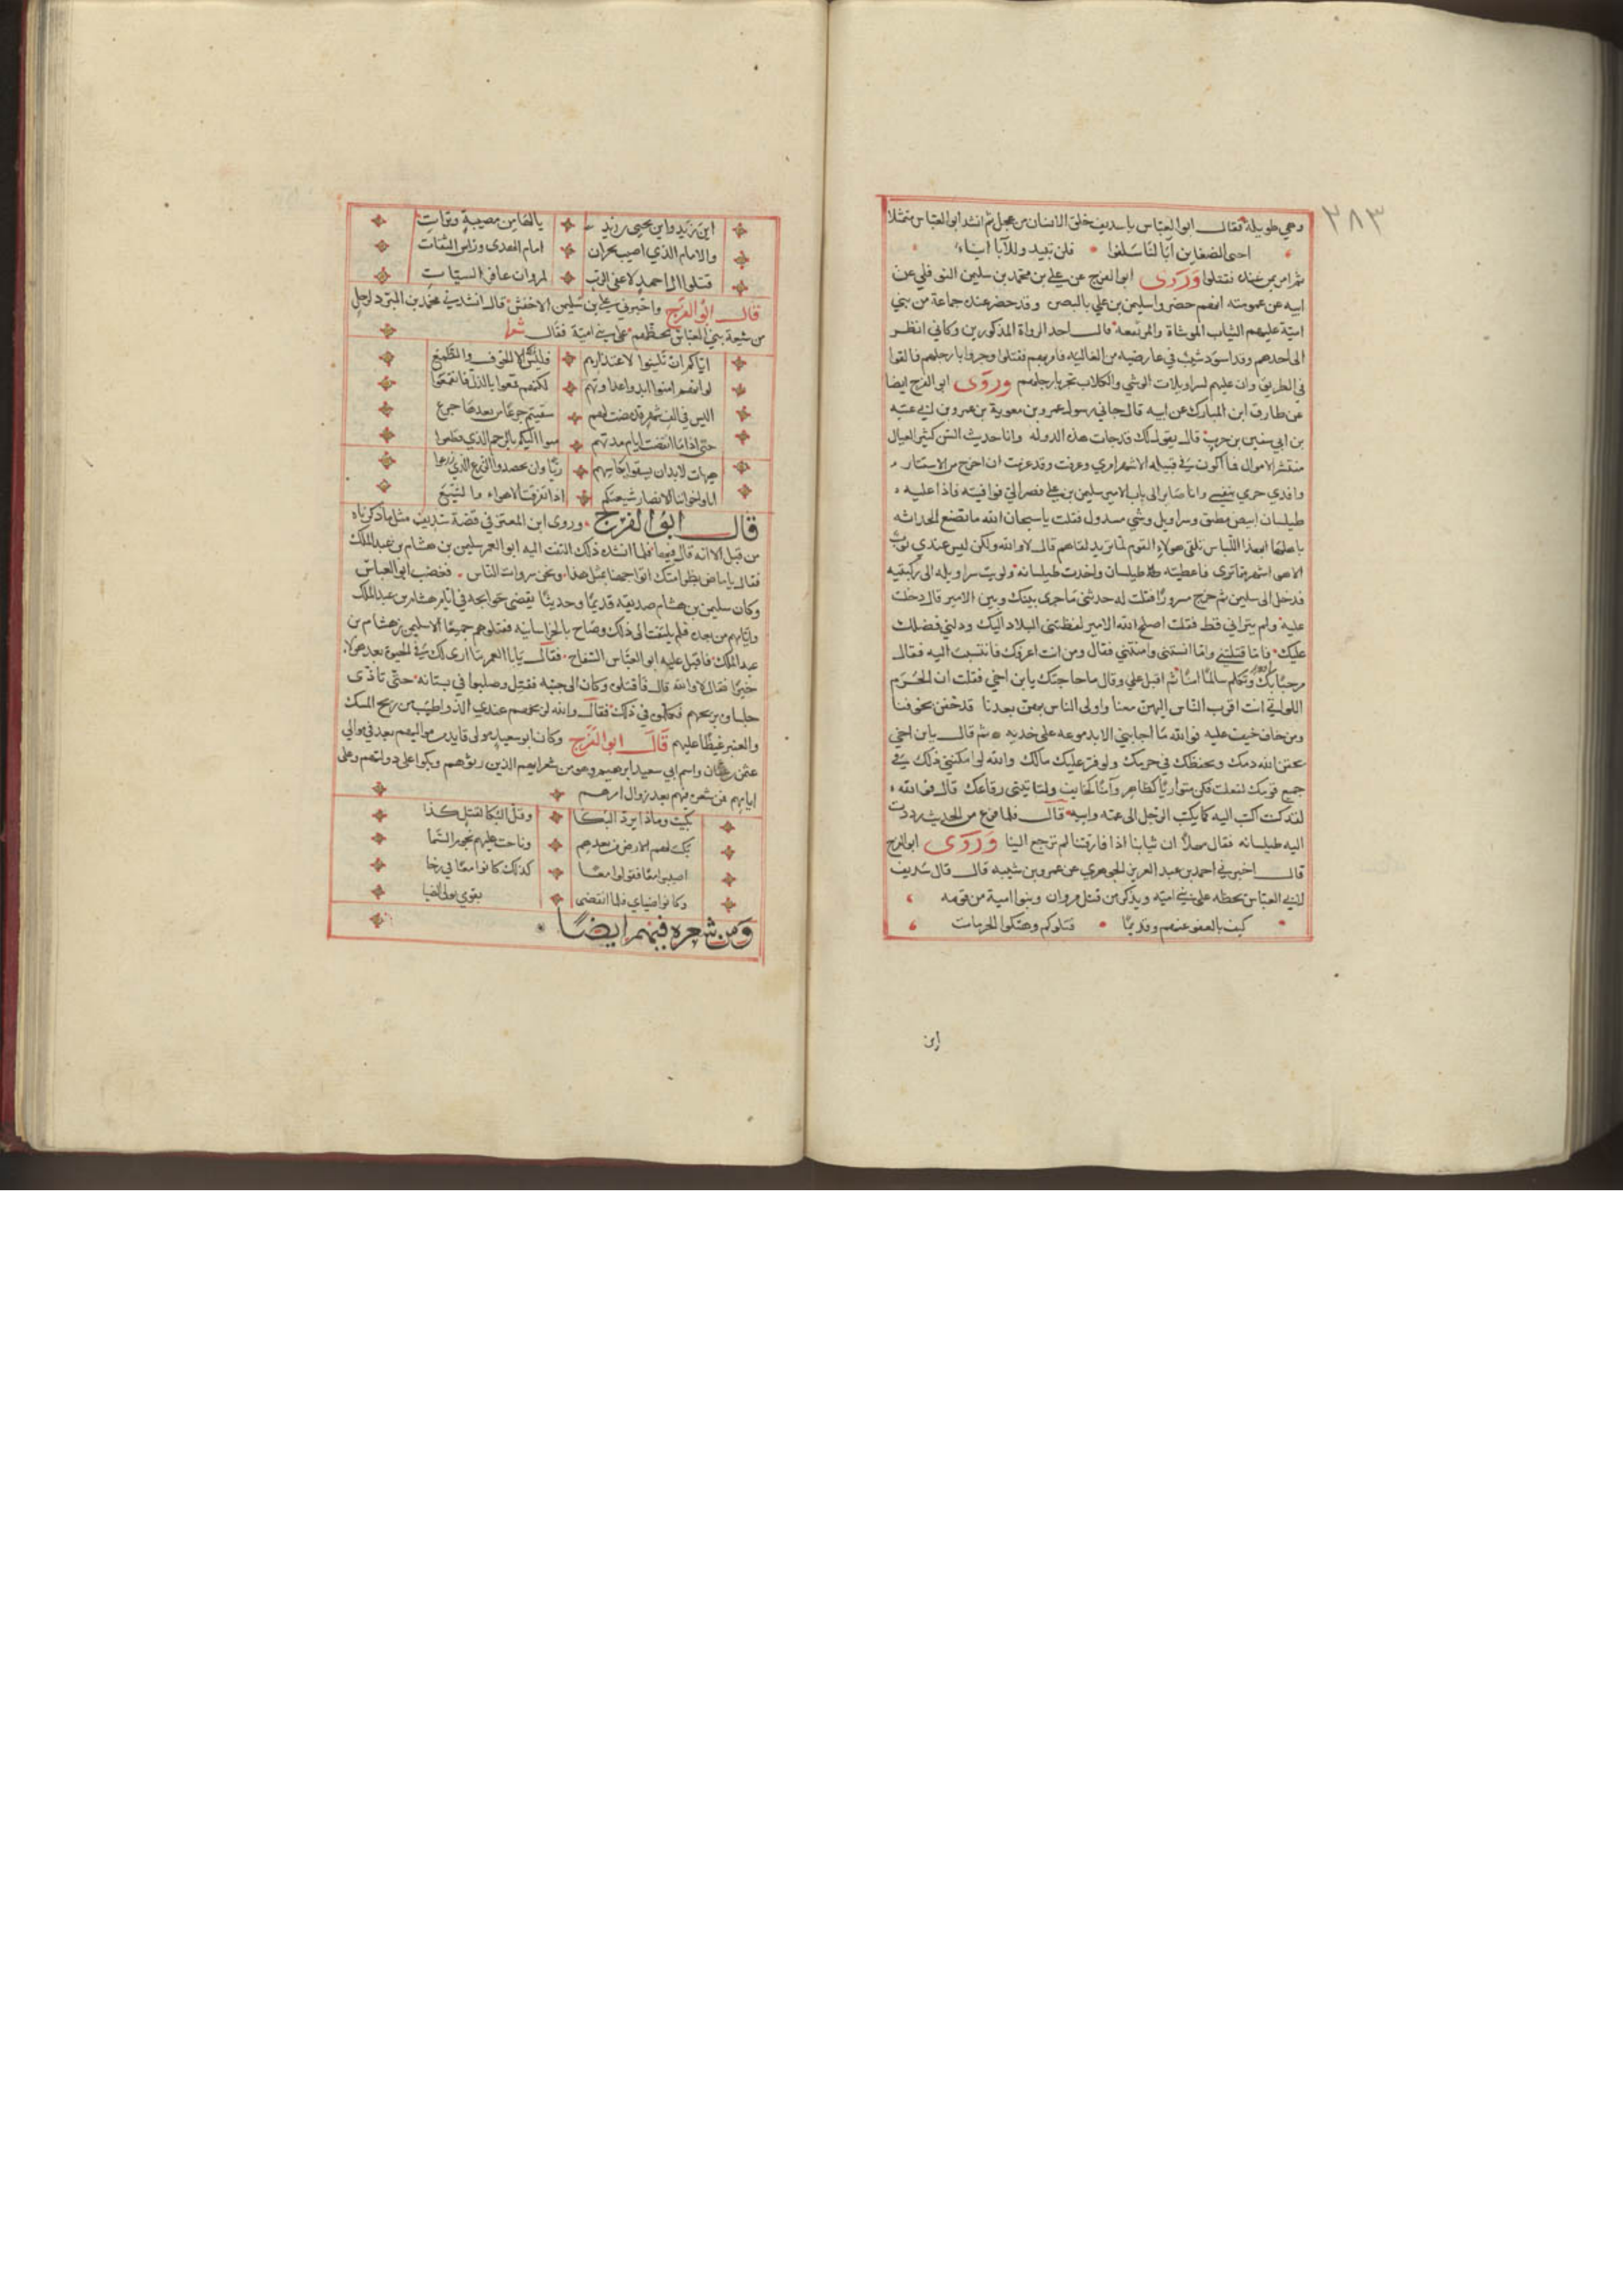 ٣٨٣
وهي طويلة فقال ابو العباس ياسديف خلق الانسان من عجل ثم انشد ابو العباس متمثلا
احيى الضغاين آباٌ لنا سلفوا فلن تبيد وللآبا ابناء
ثم امر بمن عنده فقتلوا وروى ابو الفرج عن علي بن محمد بن سليمن النوفلي عن
ابيه عن عمومته انهم حضروا سليمن بن علي بالبصره وقد حضر عنده جماعة من بني
امية عليهم الثياب الموشاة والمرتفعه قال احد الرواة المذكورين وكاني انظر
الى احدهم وقد اسود شيب في عارضيه من الغاليه فامر بهم فقتلوا وجروا بارجلهم فالقوا
في الطريق وان عليهم لسراويلات الوشي والكلاب تجر بارجلهم وروى ابو الفرج ايضا
عن طارق ابن المبارك عن ابيه قال جاني رسول عمرو بن معوية بن عمرو بن عتبه
بن ابي سفين بن حرب قال يقول لك قد جات هذه الدوله وانا حديث السن كثير العيال
منتشر الاموال فما اكون في قبيله الا شهر امري وعرفت وقد عزمت ان اخرج من الاستتار
وافدي حرمي بنفسي وانا صاير الى باب الامير سليمن بن علي فصر الي فوافيته فاذا عليه
طيلسان ابيض مطبق وسراويل وشي مسدول فقلت ياسبحان الله ما تصنع الحداثه
باهلها ابهذا اللباس تلقى هولاء القوم لما تريد لقاهم قال لا والله ولكن ليس عندي ثوب
الا هو اشهر مما ترى فاعطيته طيلسان واخذت طيلسانه ولويت سراويله الى ركبتيه
فدخل الى سليمن ثم خرج مسرورا فقلت له حدثني ما جرى بينك وبين الامير قال دخلت
عليه ولم يراني قط فقلت اصلح الله الامير لفظتني البلاد اليك ودلني فضلك
عليك فاما قتلتني واما امنتني فقال ومن انت اعرفك فانتسبت اليه فقال
مرحبًا بك وتكلم سالمًا آمنًا ثم اقبل علي وقال ما حاجتك يابن اخي فقلت ان الحرم
اللواتي انت اقرب الناس اليهن معنا واولى الناس بهن بعدنا قد خفن بخوفنا
ومن خاف خيف عليه فوالله ما اجابني الا بدموعه على خديه ثم قال يابن اخي
يحقن الله دمك ويحفظك في حرمك ويوفر عليك مالك والله لو امكنني ذلك في
جميع قومك لفعلت فكن متواريًا كظاهر وآمنًا كخايف ولتاتيني رقاعك قال فوالله
لقد كنت اكتب اليه كما يكتب الرجل الى عمه وابيه قال فلما فرغ من الحديث رددت
اليه طيلسانه فقال مهلًا ان ثيابنا اذا فارقتنا لم ترجع الينا وروى ابو الفرج
قال اخبرني احمد بن عبد العزيز الجوهري عن عمر بن شيبه قال قال سديف
لابي العباس يحظه على بني اميه ويذكر من قتل مروان وبنو امية من قومه
كيف بالعفو عنهم وقديمًا قتلوكم وهتكوا الحرمات
اين
اين زيد وابن يحيى زيد يالها من مصيبة وترات
والامام الذي اصيب بحران امام الهدى وراس الثقات
قتلوا ال احمد لا عفى الذنب لمروان غافر السيئات
قال ابو الفرج واخبرني علي بن سليمن الاخفش قال انشدني محمد بن المبرد لرجل
من شيعة بني العباس يحظهم على بني امية فقال شعرا
اياكم ان تلينوا لاعتذارهم فليس الا الخوف والطمع
لو انهم امنوا ابدوا عداوتهم لكنهم قمعوا بالذل فانقمعوا
اليس في الف شهر قد مضت لهم سقيتم جرعًا من بعدها جرع
حتى اذا ما انقضت ايام مدتهم متوا اليكم بالرحم الذي قطعوا
هيهات لا بد ان يسقوا بكاسهم ريًا وان يحصدوا الزرع الذي زرعوا
انا واخواننا الانصار شيعتكم اذا تفرقت الاهواء والشيع
قال ابو الفرج وروى ابن المعتز في قصة سديف مثل ما ذكرناه
من قبل الا انه قال فيها فلما انشده ذلك التفت اليه ابو الغمر سليمن بن هشام بن عبد الملك
فقال ياماص بظر امك اتواجهنا بمثل هذا ونحن سروات الناس فغضب ابو العباس
وكان سليمن بن هشام صديقه قديمًا وحديثًا يقضي حوايجه في ايام هشام بن عبد الملك
وايامهم من بعده فلم يلتفت الى ذلك وصاح بالخراسانيه فقتلوهم جميعًا الا سليمن بن هشام بن
عبد الملك فاقبل عليه ابو العباس السفاح فقال يابا الغمر ما ارى لك في الحيوة بعد هولاء
خيرًا فقال لا والله قال فاقتلوه وكان الى جنبه فقتل وصلبوا في بستانه حتى تاذى
جلساوه بريحهم فكلموه في ذلك فقال والله لريحهم عندي الذ واطيب من ريح المسك
والعنبر غيظًا عليهم قال ابو الفرج وكان ابو سعيد مولى فايد من مواليهم يعد في موالي
عثمن بن عفان واسم ابي سعيد ابرهيم وهو من شعرايهم الذين رثوهم وبكوا على دولتهم وعلى
ايامهم فمن شعره فيهم بعد زوال امرهم
بكيت وماذا يرد البكا وقل البكا لقتلى كدا
بكت لهم الارض من بعدهم وناحت عليهم نجوم السما
اصيبوا معًا فتولوا معًا كذلك كانوا معًا في رخا
وكانوا ضياي فلما انقضى بقومي تولى الضيا
ومن شعره فيهم ايضًا